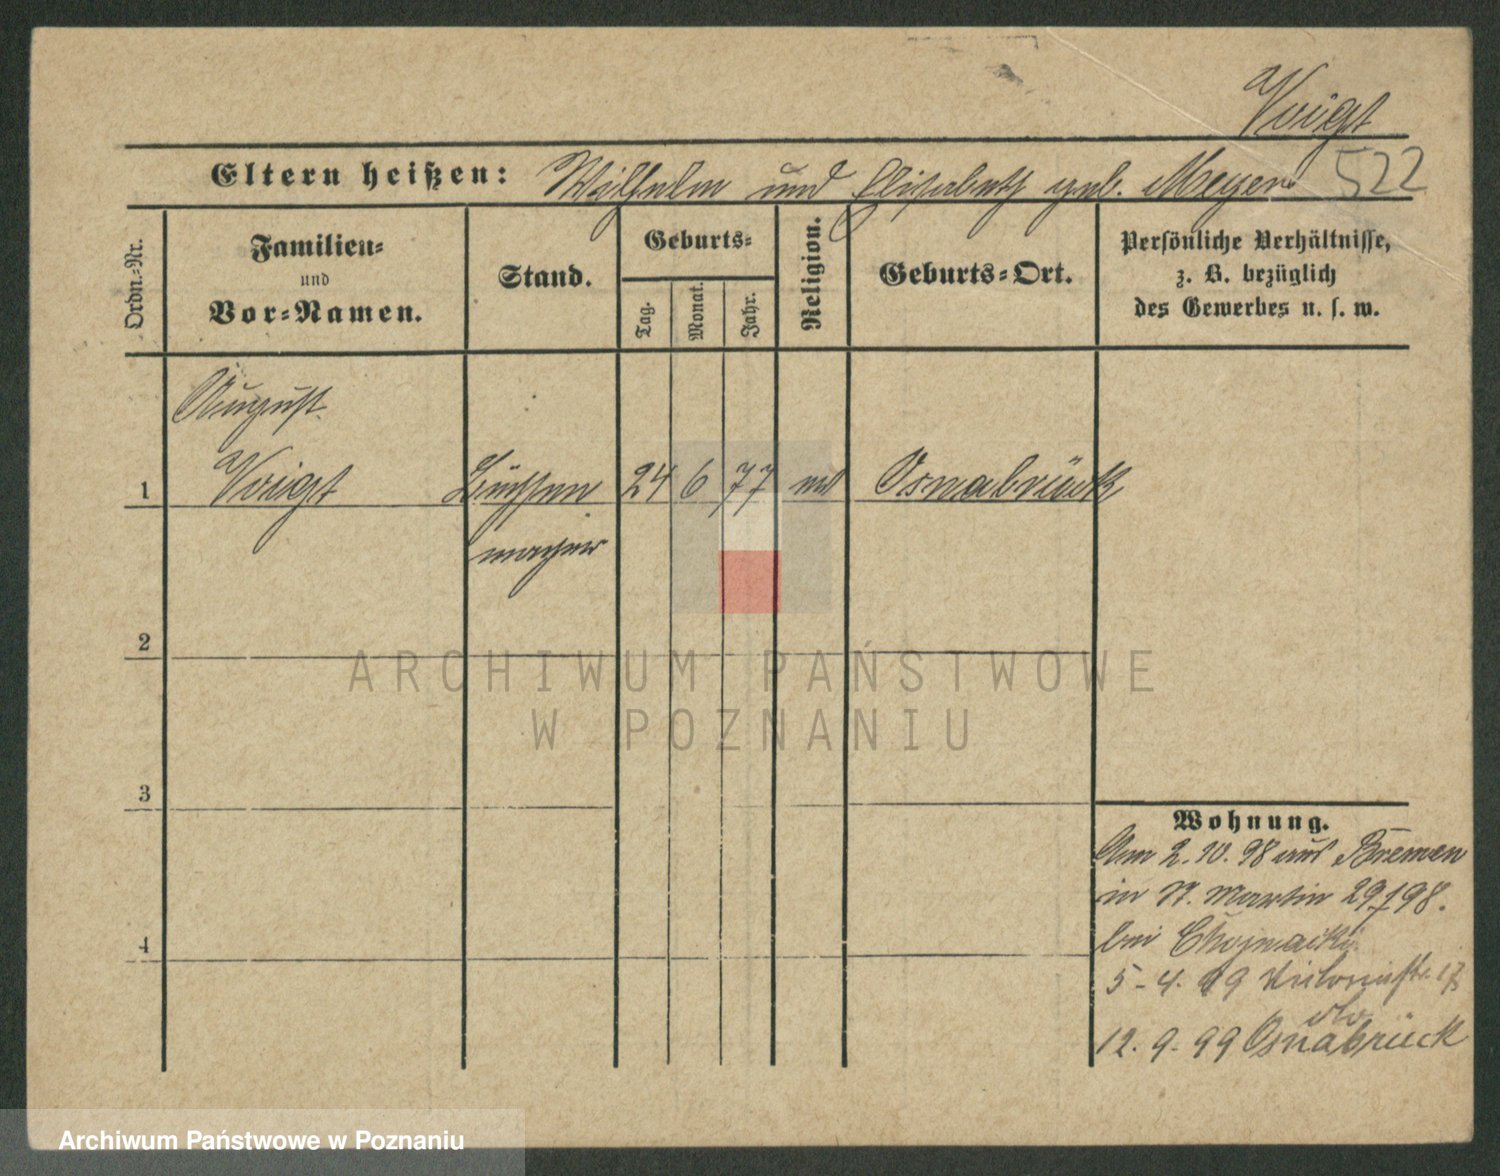 Voigt
Eltern heißen: Wilhelm und Elisabeth geb. Meyer 522
Ordn.-Nr.
Familien-
und
Vor-Namen.
Stand.
Geburts-
Tag.
Monat.
Jahr.
Religion.
Geburts-Ort.
Persönliche Verhältnisse,
z. B. bezüglich
des Gewerbes u. s. w.
August
1 Voigt Büchsen 24 6 77 Osnabrück
macher
2
3
4
Wohnung.
Am 2.10.98 aus Bremen
in St. Martin 29 98.
bei Chojnacki
5-4. 99
12.9.99 Osnabrück
ARCHIWUM PAŃSTWOWE
W POZNANIU
Archiwum Państwowe w Poznaniu